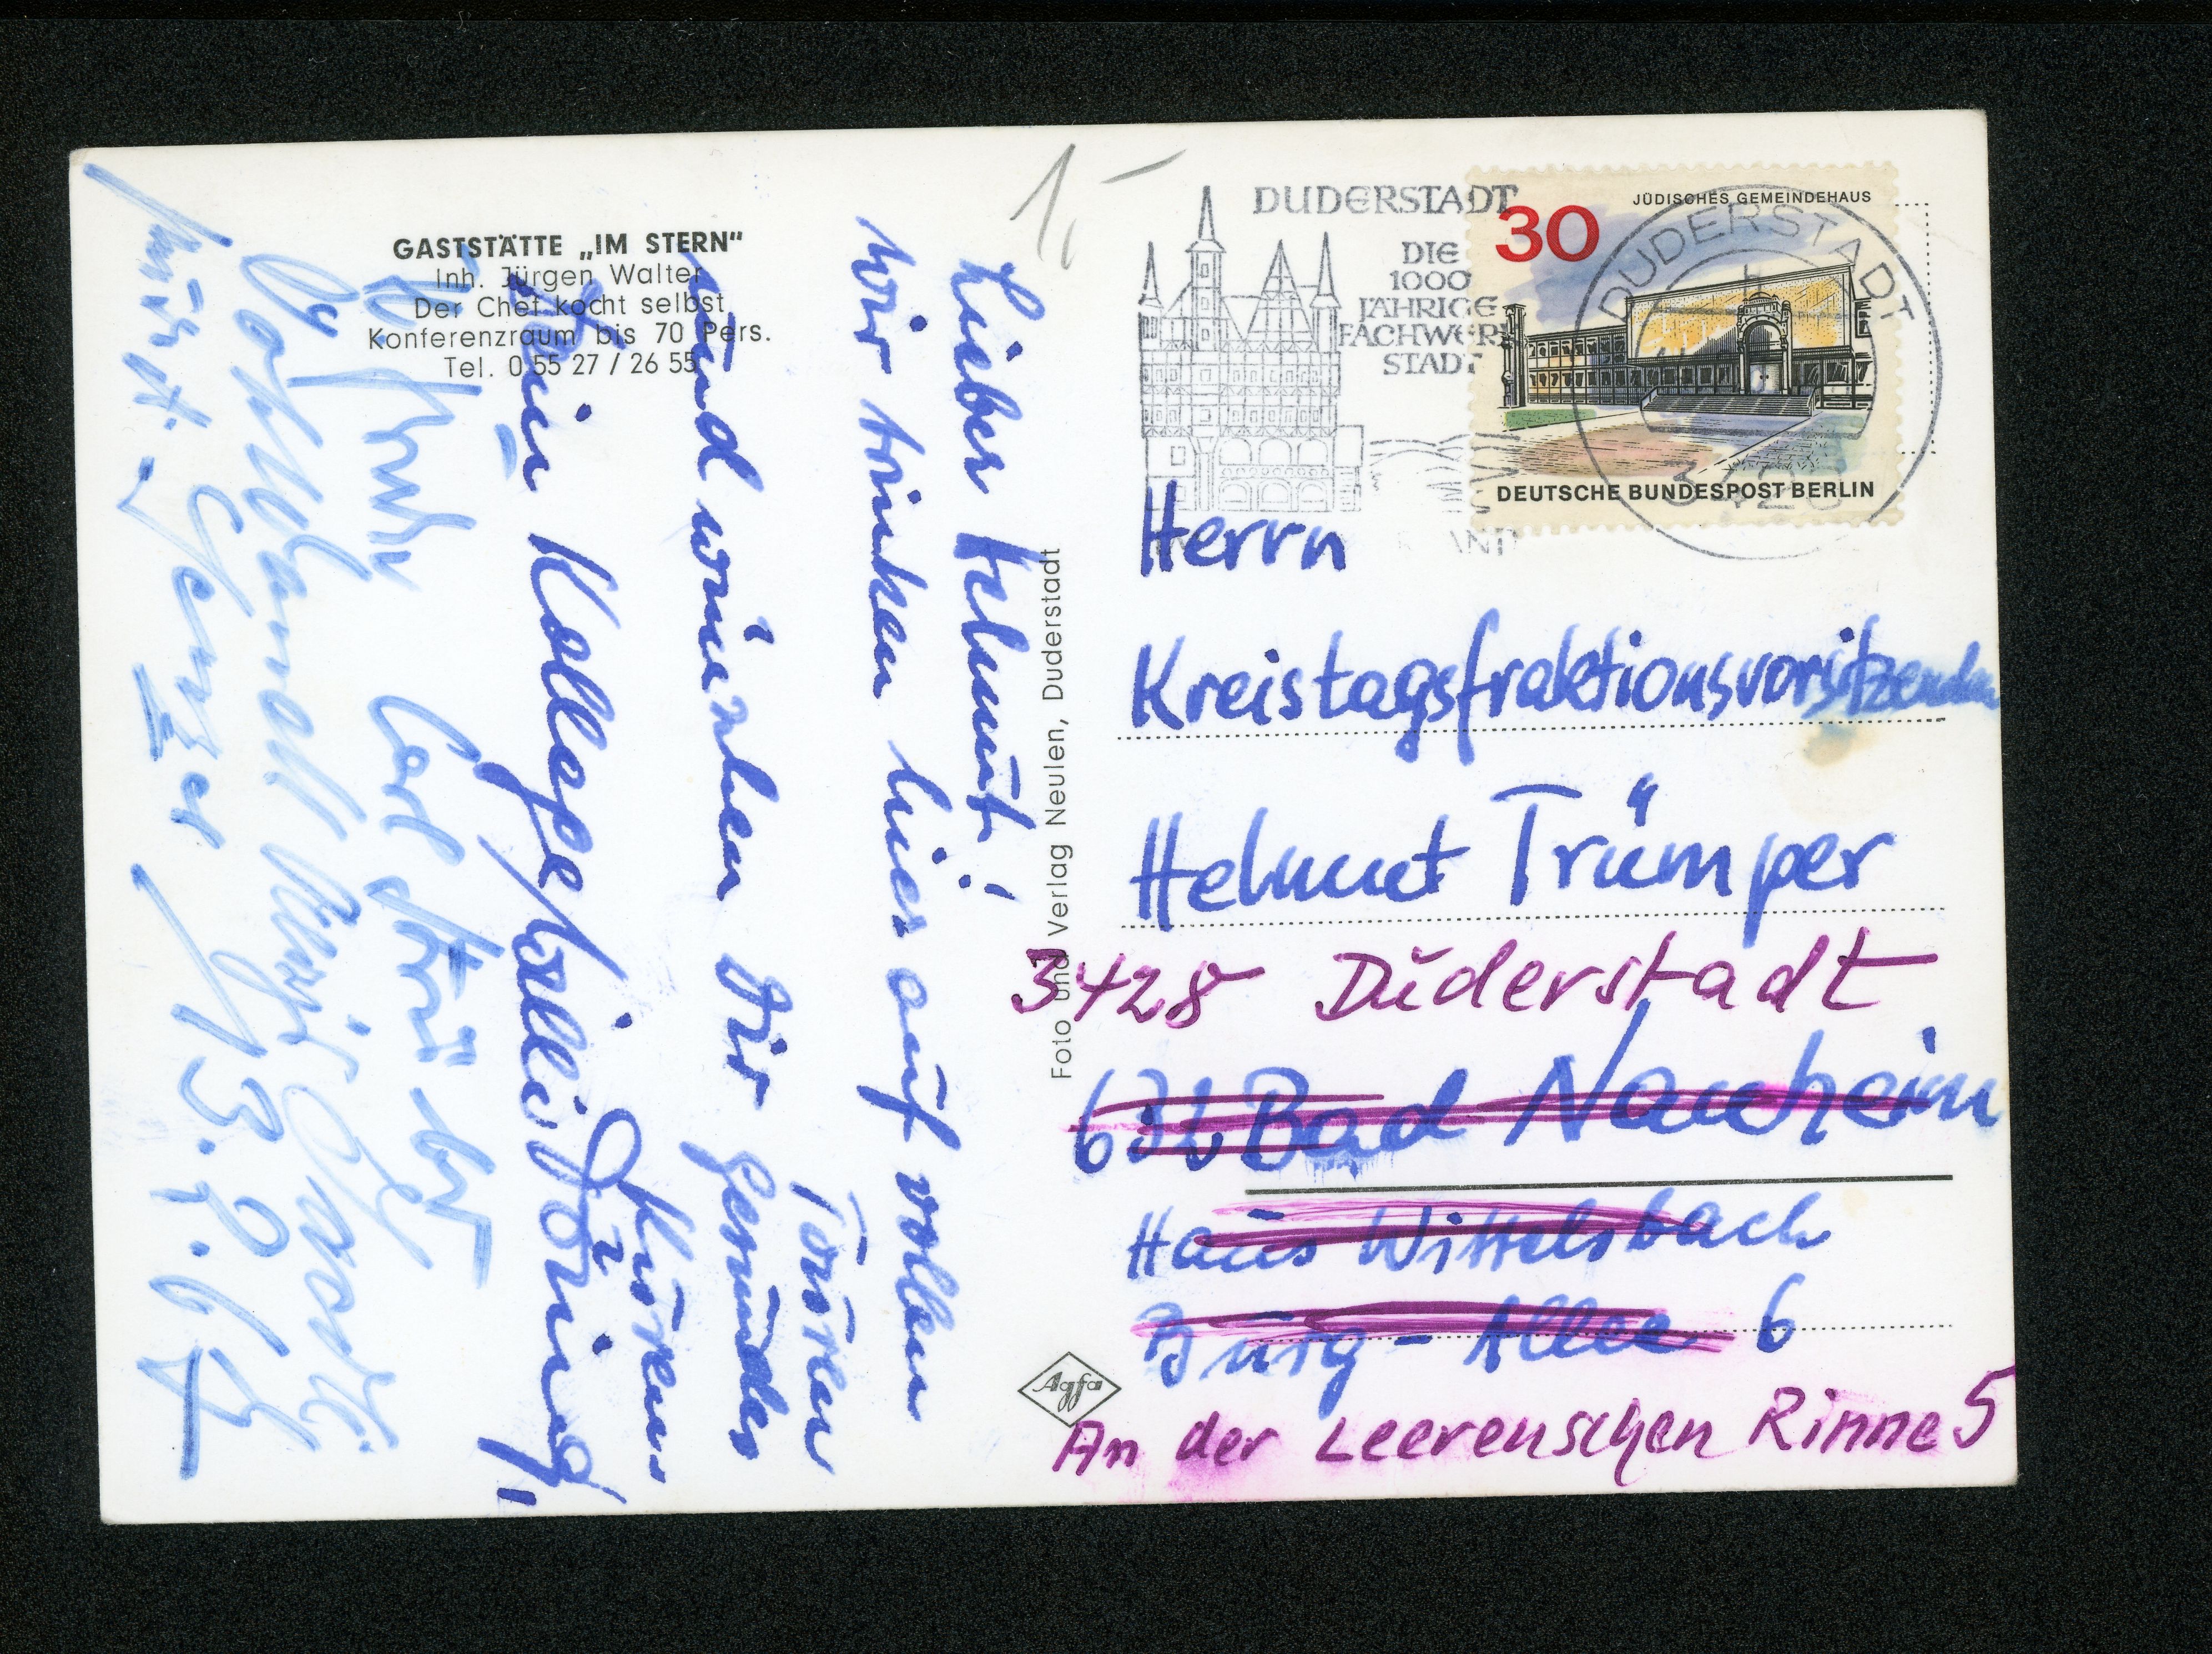 GASTSTÄTTE „IM STERN"
Inh. Jürgen Walter
Der Chef kocht selbst
Konferenzraum bis 70 Pers.
Tel. 0 55 27 / 26 55
Lieber Helmut!
Wir trinken hier auf vollen
Touren
und wünschen Dir Gesundes
Kuren.
Dein Kollege
Carl
13.9.67
Foto und Verlag Neulen, Duderstadt
Agfa
1,-
DUDERSTADT
DIE
1000
JÄHRIGE
FACHWERK
STADT
DUDERSTADT
30
JÜDISCHES GEMEINDEHAUS
DEUTSCHE BUNDESPOST BERLIN
Herrn
Kreistagsfraktionsvorsitzenden
Helmut Trümper
3428 Duderstadt
632 Bad Nauheim
Haus Wittelsbach
Burg-Allee 6
An der Leerenschen Rinne 5